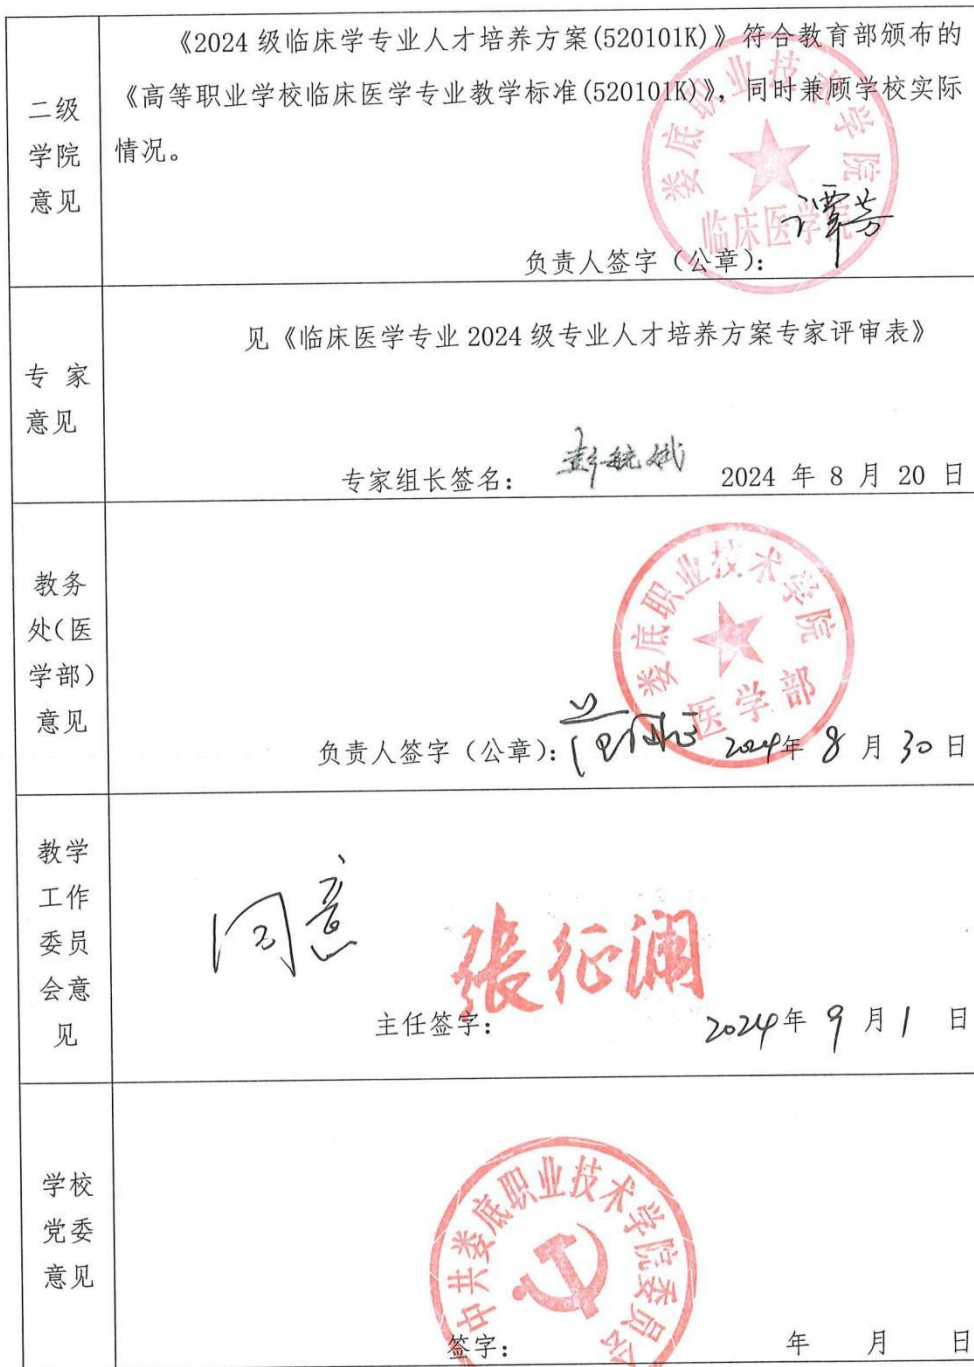 二级
学院
意见
《2024 级临床学专业人才培养方案(520101K)》符合教育部颁布的
《高等职业学校临床医学专业教学标准(520101K)》，同时兼顾学校实际
情况。
娄底职业技术学院
临床医学院
负责人签字（公章）：
谭芳
专 家
意见
见《临床医学专业 2024 级专业人才培养方案专家评审表》
专家组长签名：
2024 年 8 月 20 日
教务
处（医
学部）
意见
娄底职业技术学院
医学部
负责人签字（公章）：
2024年 8 月 30 日
教学
工作
委员
会意
见
同意
張征澜
主任签字：
2024年 9 月 1 日
学校
党委
意见
中共娄底职业技术学院委员会
签字：
年 月 日